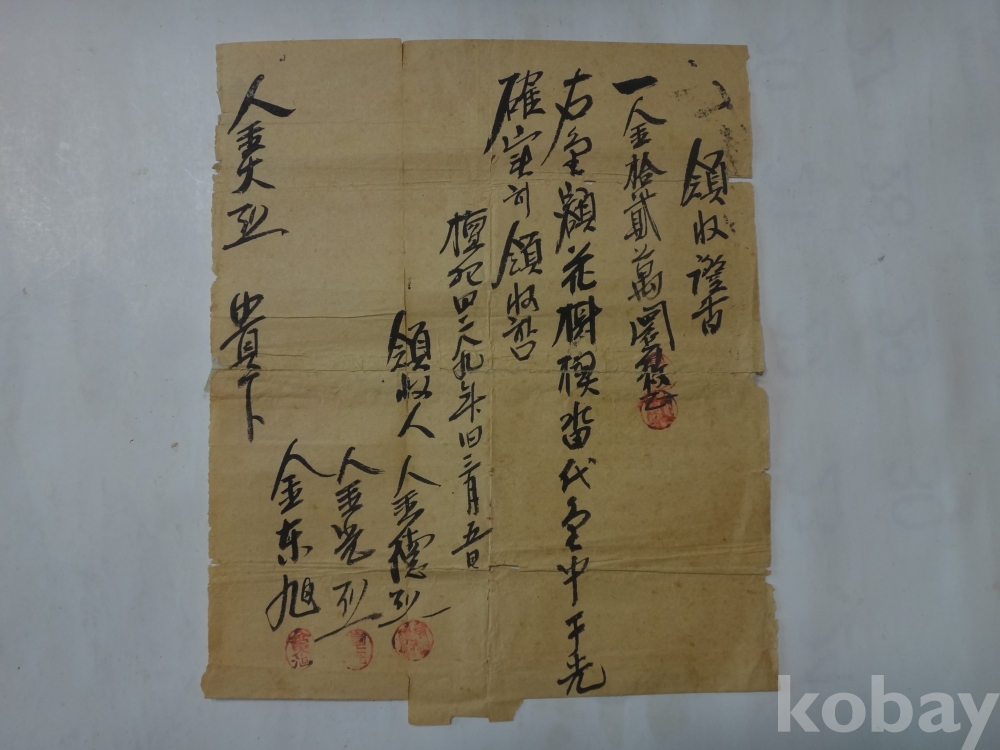 領收證書
一金拾貳萬圜整
右金額花樹稧畓代金中
確實히 領收함
檀紀四二八九年旧二月五日
領收人 金德烈
金光烈
金東旭
金大烈 貴下
kobay